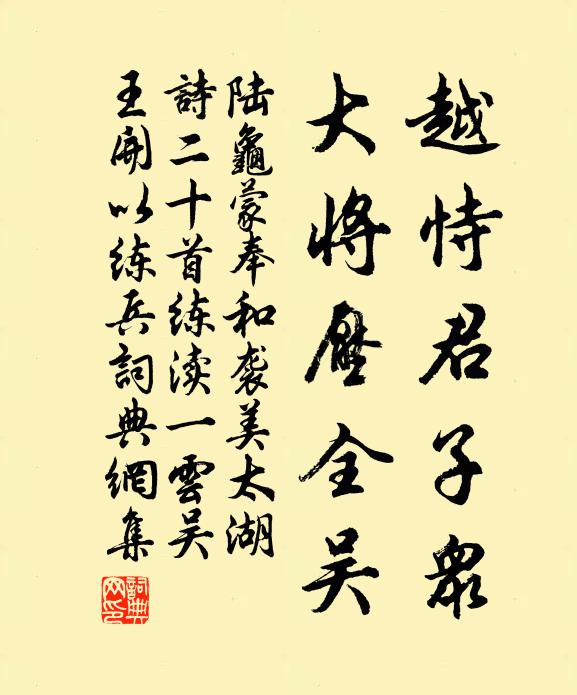 越恃君子衆
大將壓全吴
陆龜蒙奉和袭美太湖
詩二十首练渎一雲吴
王開以练兵詞典網集
詞典網印